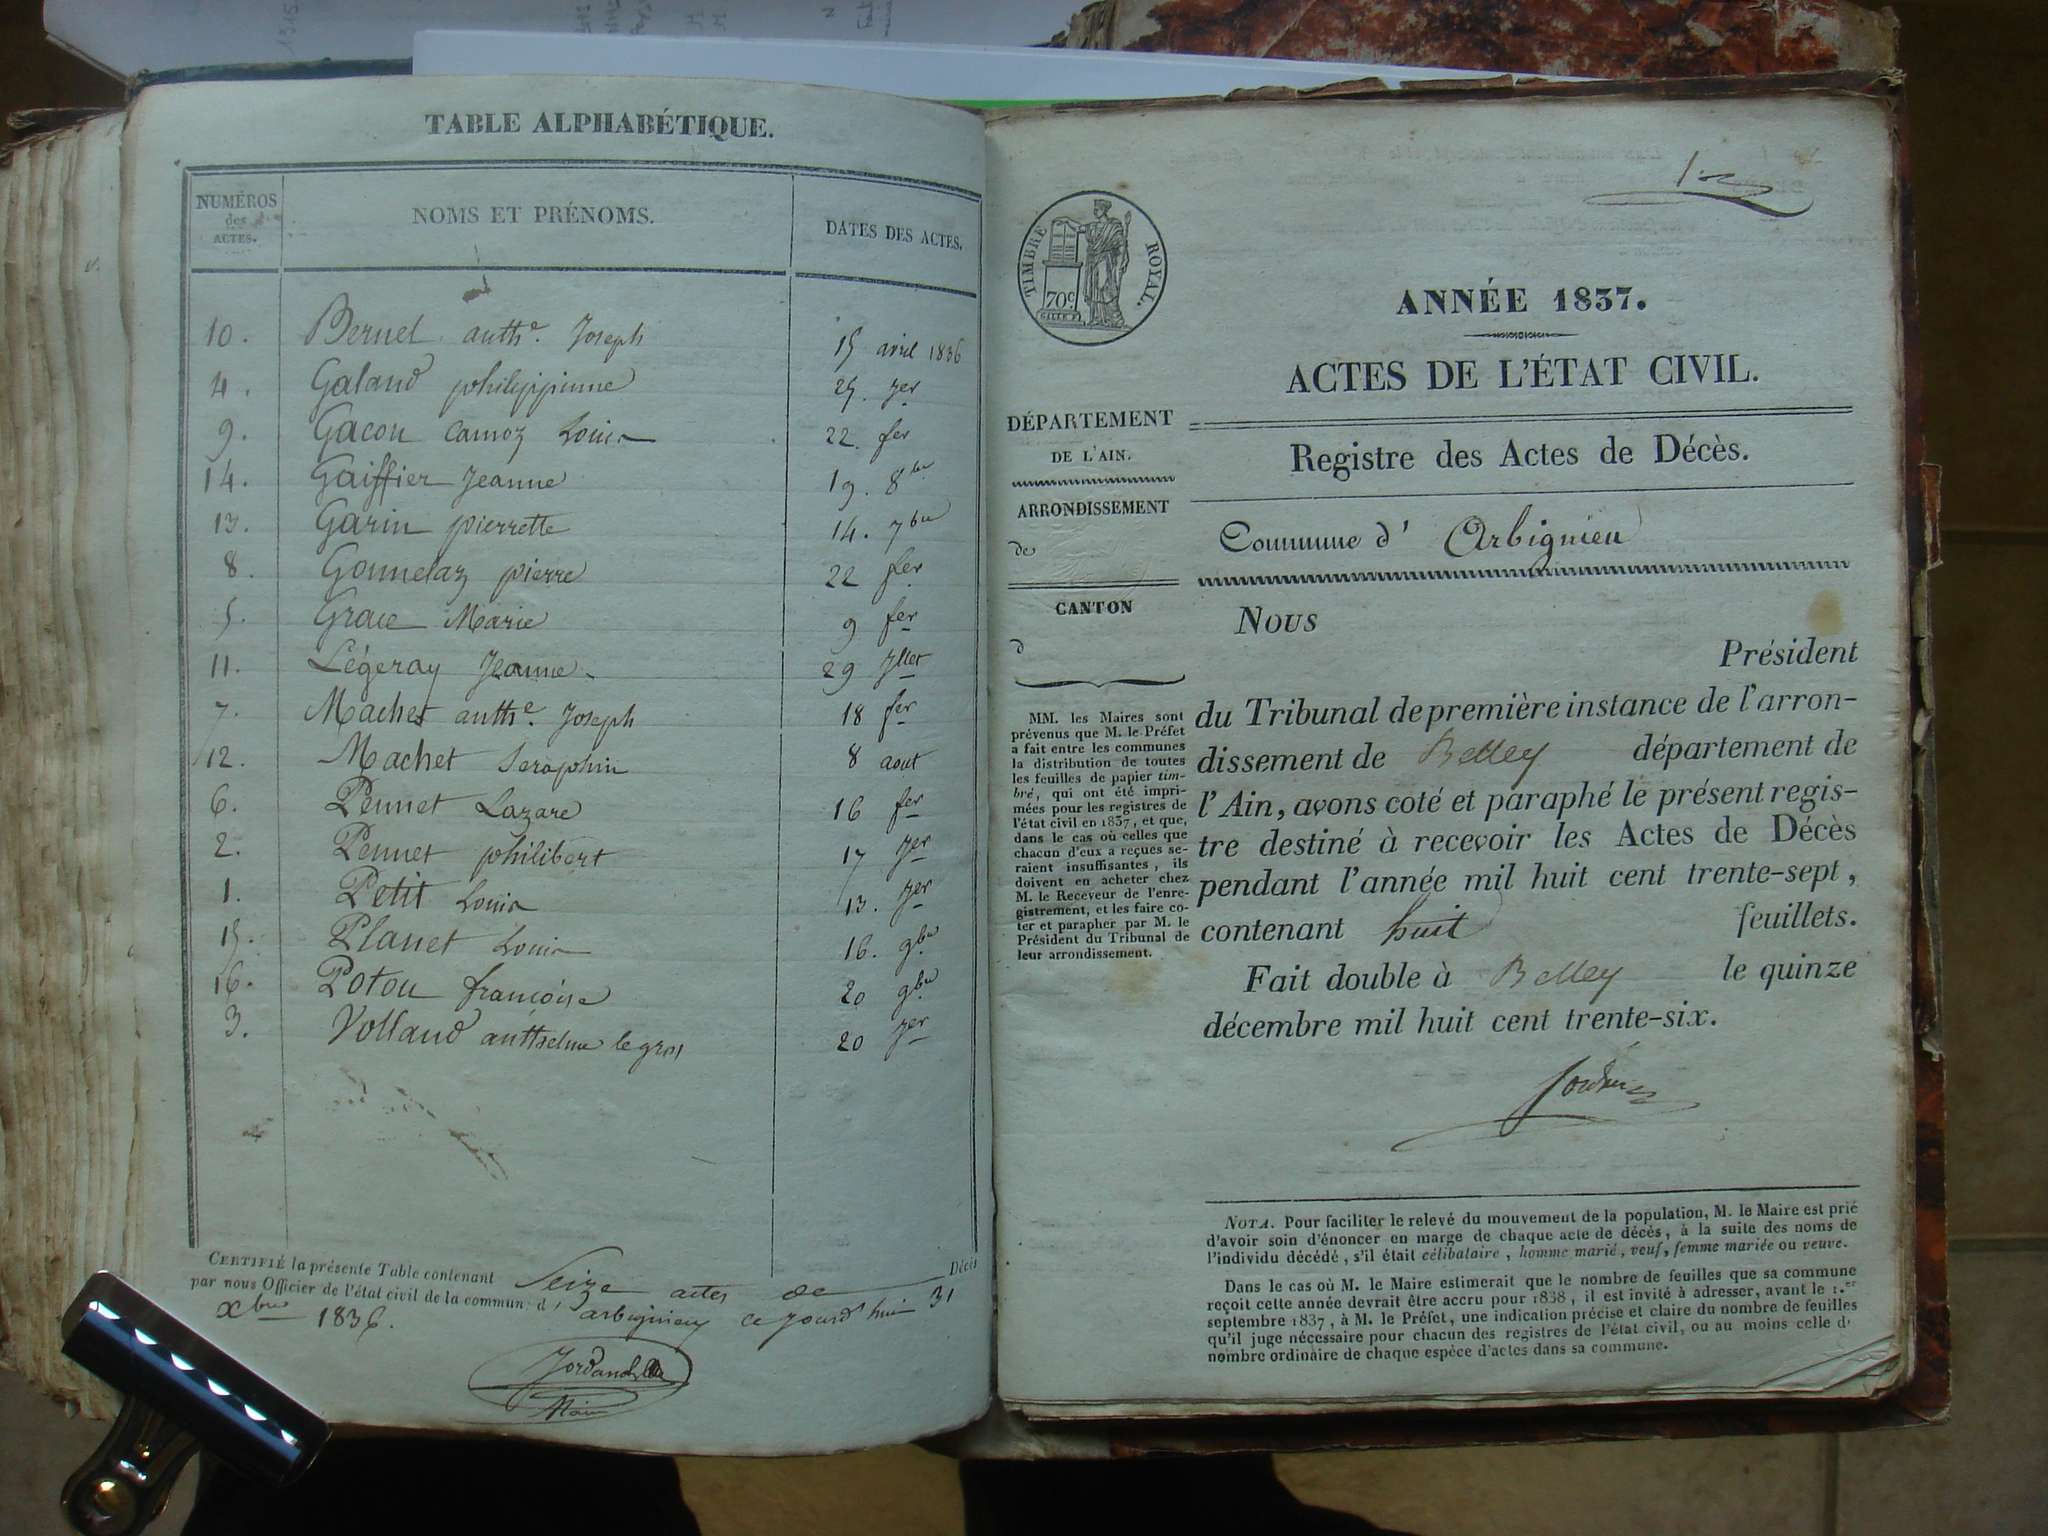 TABLE ALPHABÉTIQUE.
NUMÉROS des ACTES. NOMS ET PRÉNOMS. DATES DES ACTES.
10. Bernel anth.e Joseph 15 avril 1836
4. Galand philippinne 25. jer
9. Gacon Camoz Louis 22. fer
14. Gaiffier Jeanne 19. 8bre
13. Garin pierrette 14. 7bre
8. Gonnelaz pierre 22 fer
5. Grace Marie 9 fer
11. Légeray Jeanne 29 Jllet
7. Machet anth.e Joseph 18 fer
12. Machet Seraphin 8 aout
6. Pennet Lazare 16 fer
2. Pennet philibert 17 jer
1. Petit Louis 13. jer
15. Planet Louis 16. 9bre
16. Potou françoise 20 9bre
3. Volland anthelme le gros 20 jer
CERTIFIÉ la présente Table contenant Seize actes de Décès
par nous Officier de l'état civil de la commun: d' arbignieu ce jourd'hui 31
Xbre 1836.
Maire
TIMBRE ROYAL.
70c
ANNÉE 1837.
ACTES DE L'ÉTAT CIVIL.
DÉPARTEMENT
DE L'AIN.
Registre des Actes de Décès.
ARRONDISSEMENT
de
Commune d' Arbignieu
CANTON
d
Nous
Président
du Tribunal de première instance de l'arron-
dissement de Belley département de
l'Ain, avons coté et paraphé le présent regis-
tre destiné à recevoir les Actes de Décès
pendant l'année mil huit cent trente-sept,
contenant huit feuillets.
Fait double à Belley le quinze
décembre mil huit cent trente-six.
MM. les Maires sont
prévenus que M. le Préfet
a fait entre les communes
la distribution de toutes
les feuilles de papier tim-
bré, qui ont été impri-
mées pour les registres de
l'état civil en 1837, et que,
dans le cas où celles que
chacun d'eux a reçues se-
raient insuffisantes, ils
doivent en acheter chez
M. le Receveur de l'enre-
gistrement, et les faire co-
ter et parapher par M. le
Président du Tribunal de
leur arrondissement.
NOTA. Pour faciliter le relevé du mouvement de la population, M. le Maire est prié
d'avoir soin d'énoncer en marge de chaque acte de décès, à la suite des noms de
l'individu décédé, s'il était célibataire, homme marié, veuf, femme mariée ou veuve.
Dans le cas où M. le Maire estimerait que le nombre de feuilles que sa commune
reçoit cette année devrait être accru pour 1838, il est invité à adresser, avant le 1.er
septembre 1837, à M. le Préfet, une indication précise et claire du nombre de feuilles
qu'il juge nécessaire pour chacun des registres de l'état civil, ou au moins celle d'
nombre ordinaire de chaque espèce d'actes dans sa commune.